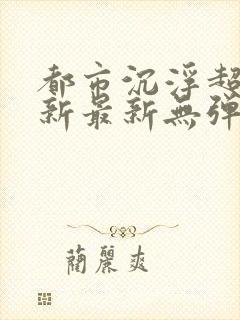 都市沉浮超
新最新無彈
蘭麗爽